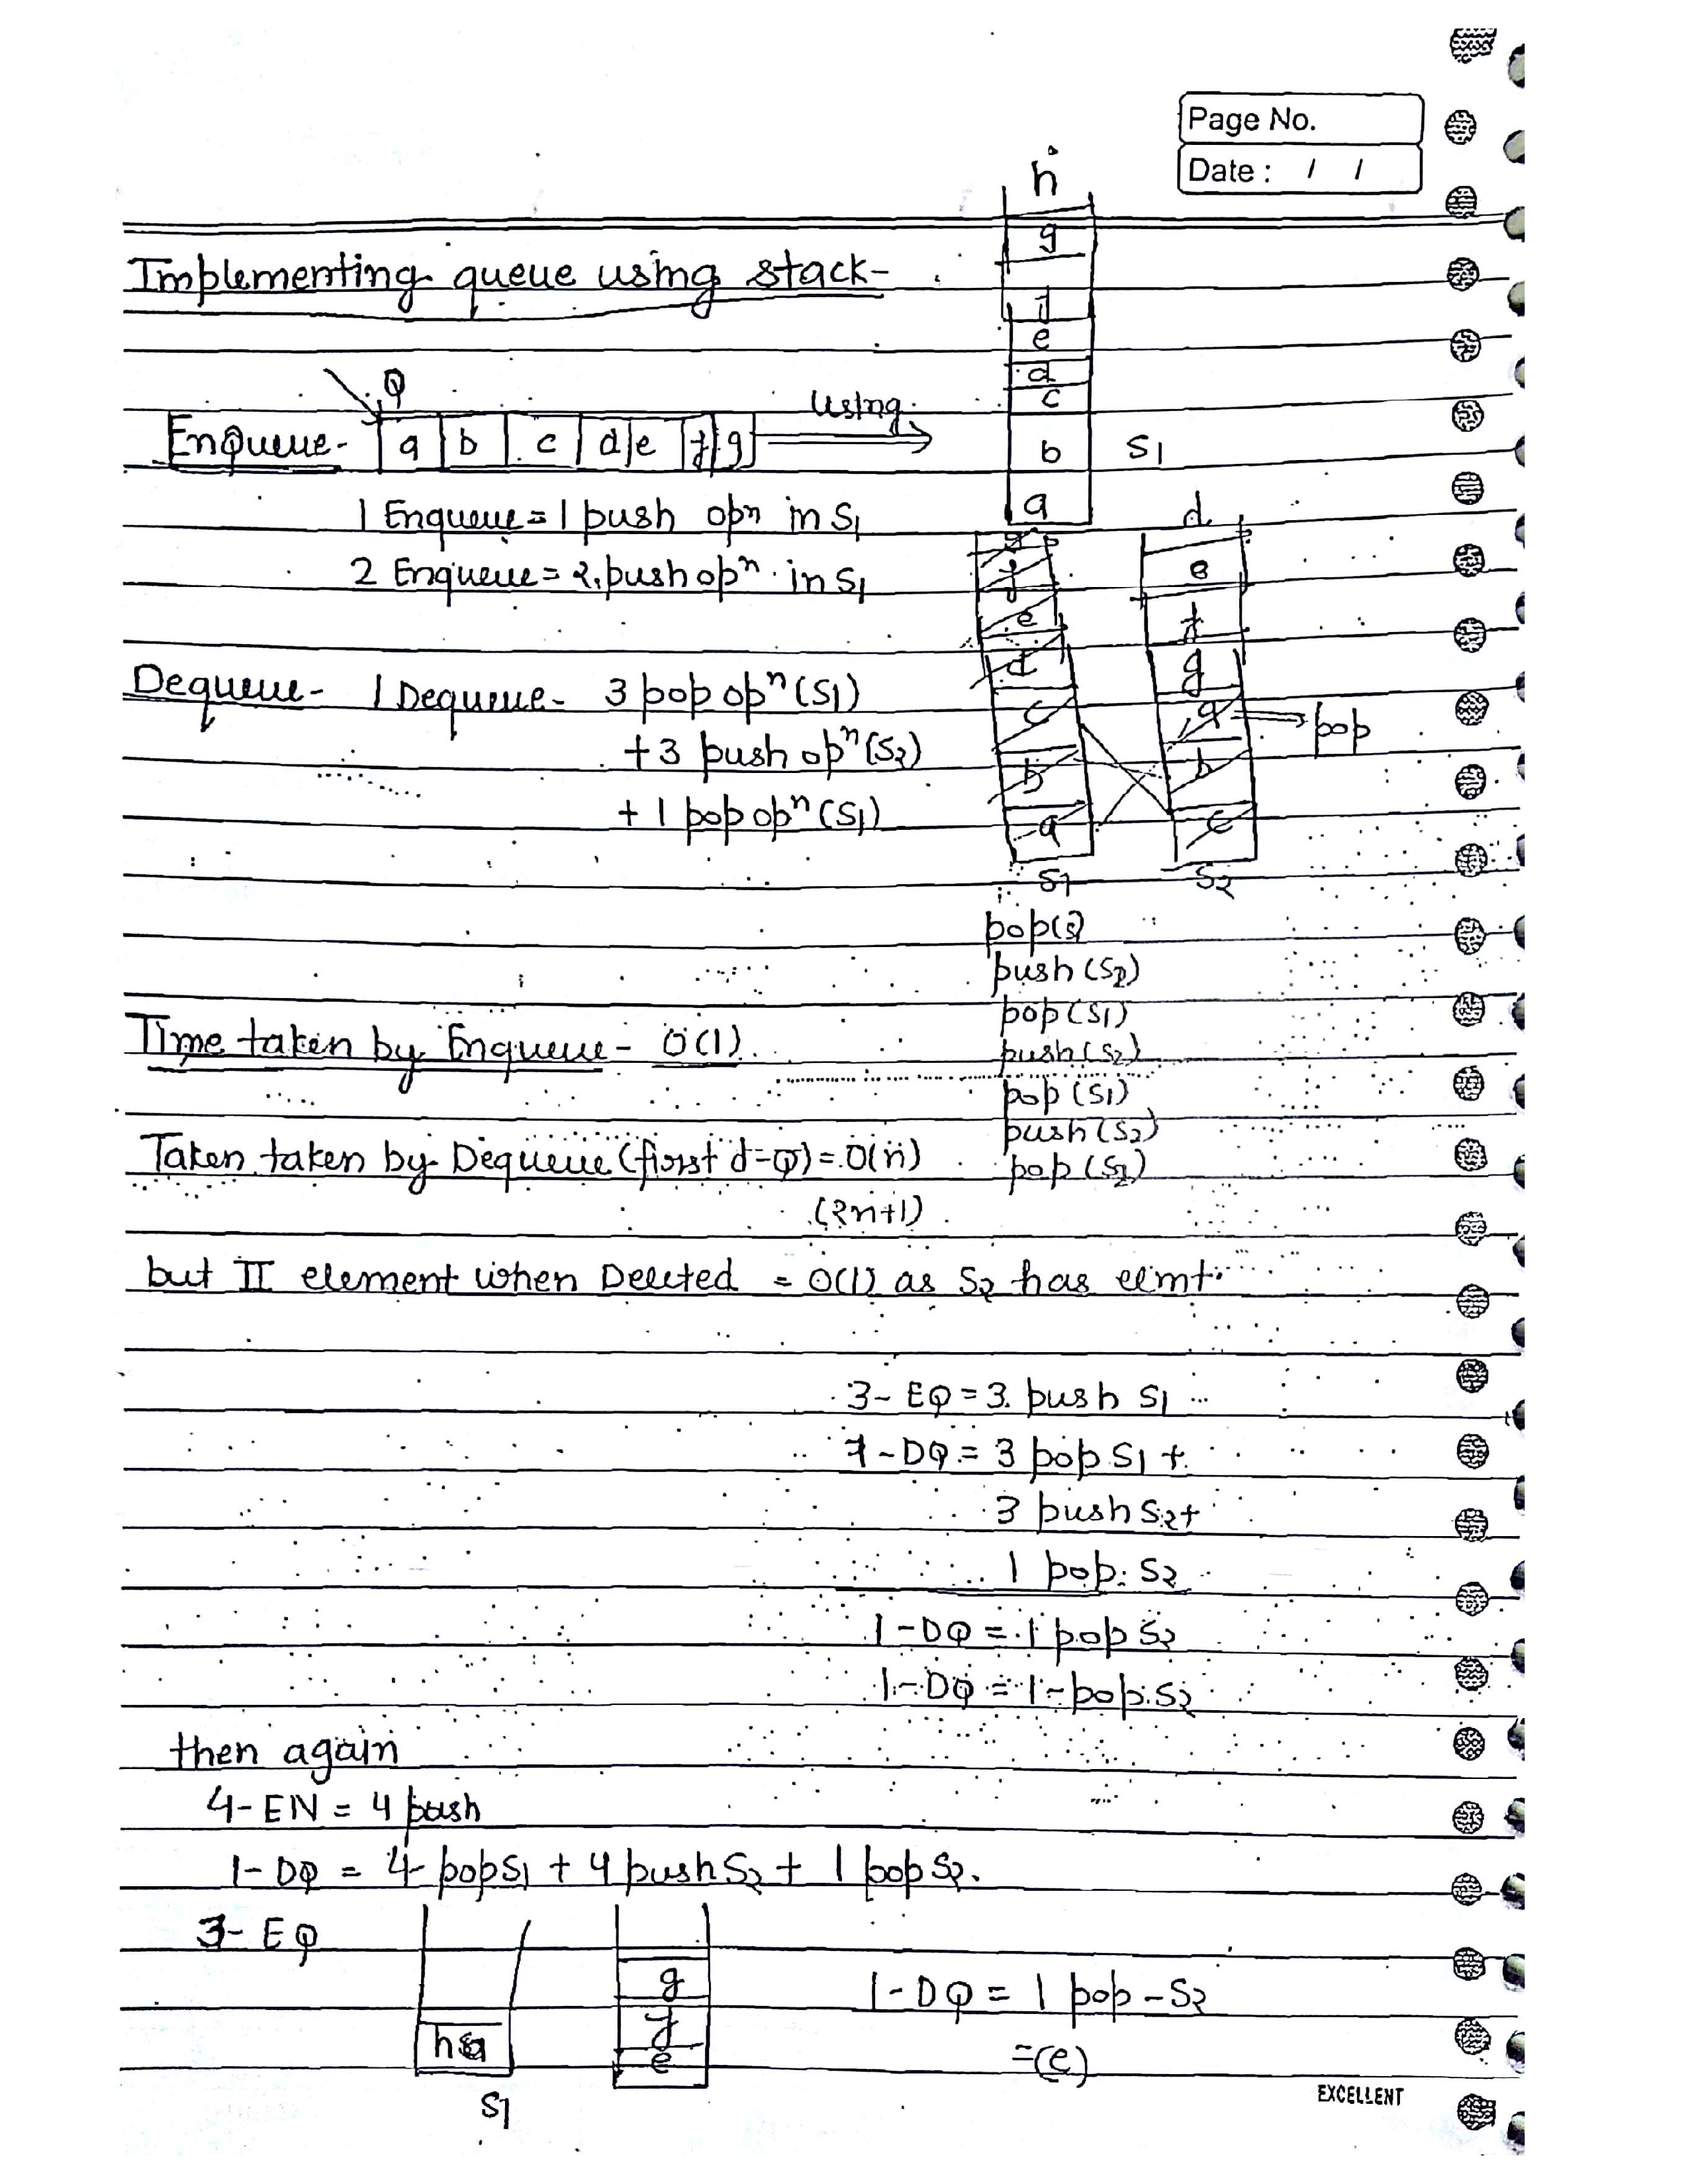 Page No.
Date : / /
h
g
Implementing queue using stack-
f
e
d
c
Q
using
EnQueue- a b c d e f g
b S1
a
1 Enqueue = 1 push opn in S1
2 Enqueue = 2. push opn in S1
d
g
f e
e f
d g
c a pop
b b
a c
S1 S2
Dequeue- 1 Dequeue- 3 pop opn (S1)
+ 3 push opn (S2)
+ 1 pop opn (S1)
pop(S)
push (S2)
pop (S1)
push (S2)
pop (S1)
push (S2)
pop (S2)
Time taken by Enqueue - O(1)
Taken taken by Dequeue (first d-Q) = O(n)
(2n+1)
but II element when Deleted = O(1) as S2 has elmt.
3- EQ = 3. push S1
1 - DQ = 3 pop S1 +
3 push S2+
1 pop. S2
1 - DQ = 1 pop S2
1 - DQ = 1 - pop. S2
then again
4- EN = 4 push
1- DQ = 4- pop S1 + 4 push S2 + 1 pop S2.
3- EQ
g
f
h e
S1
1 - DQ = 1 pop - S2
= (e)
EXCELLENT